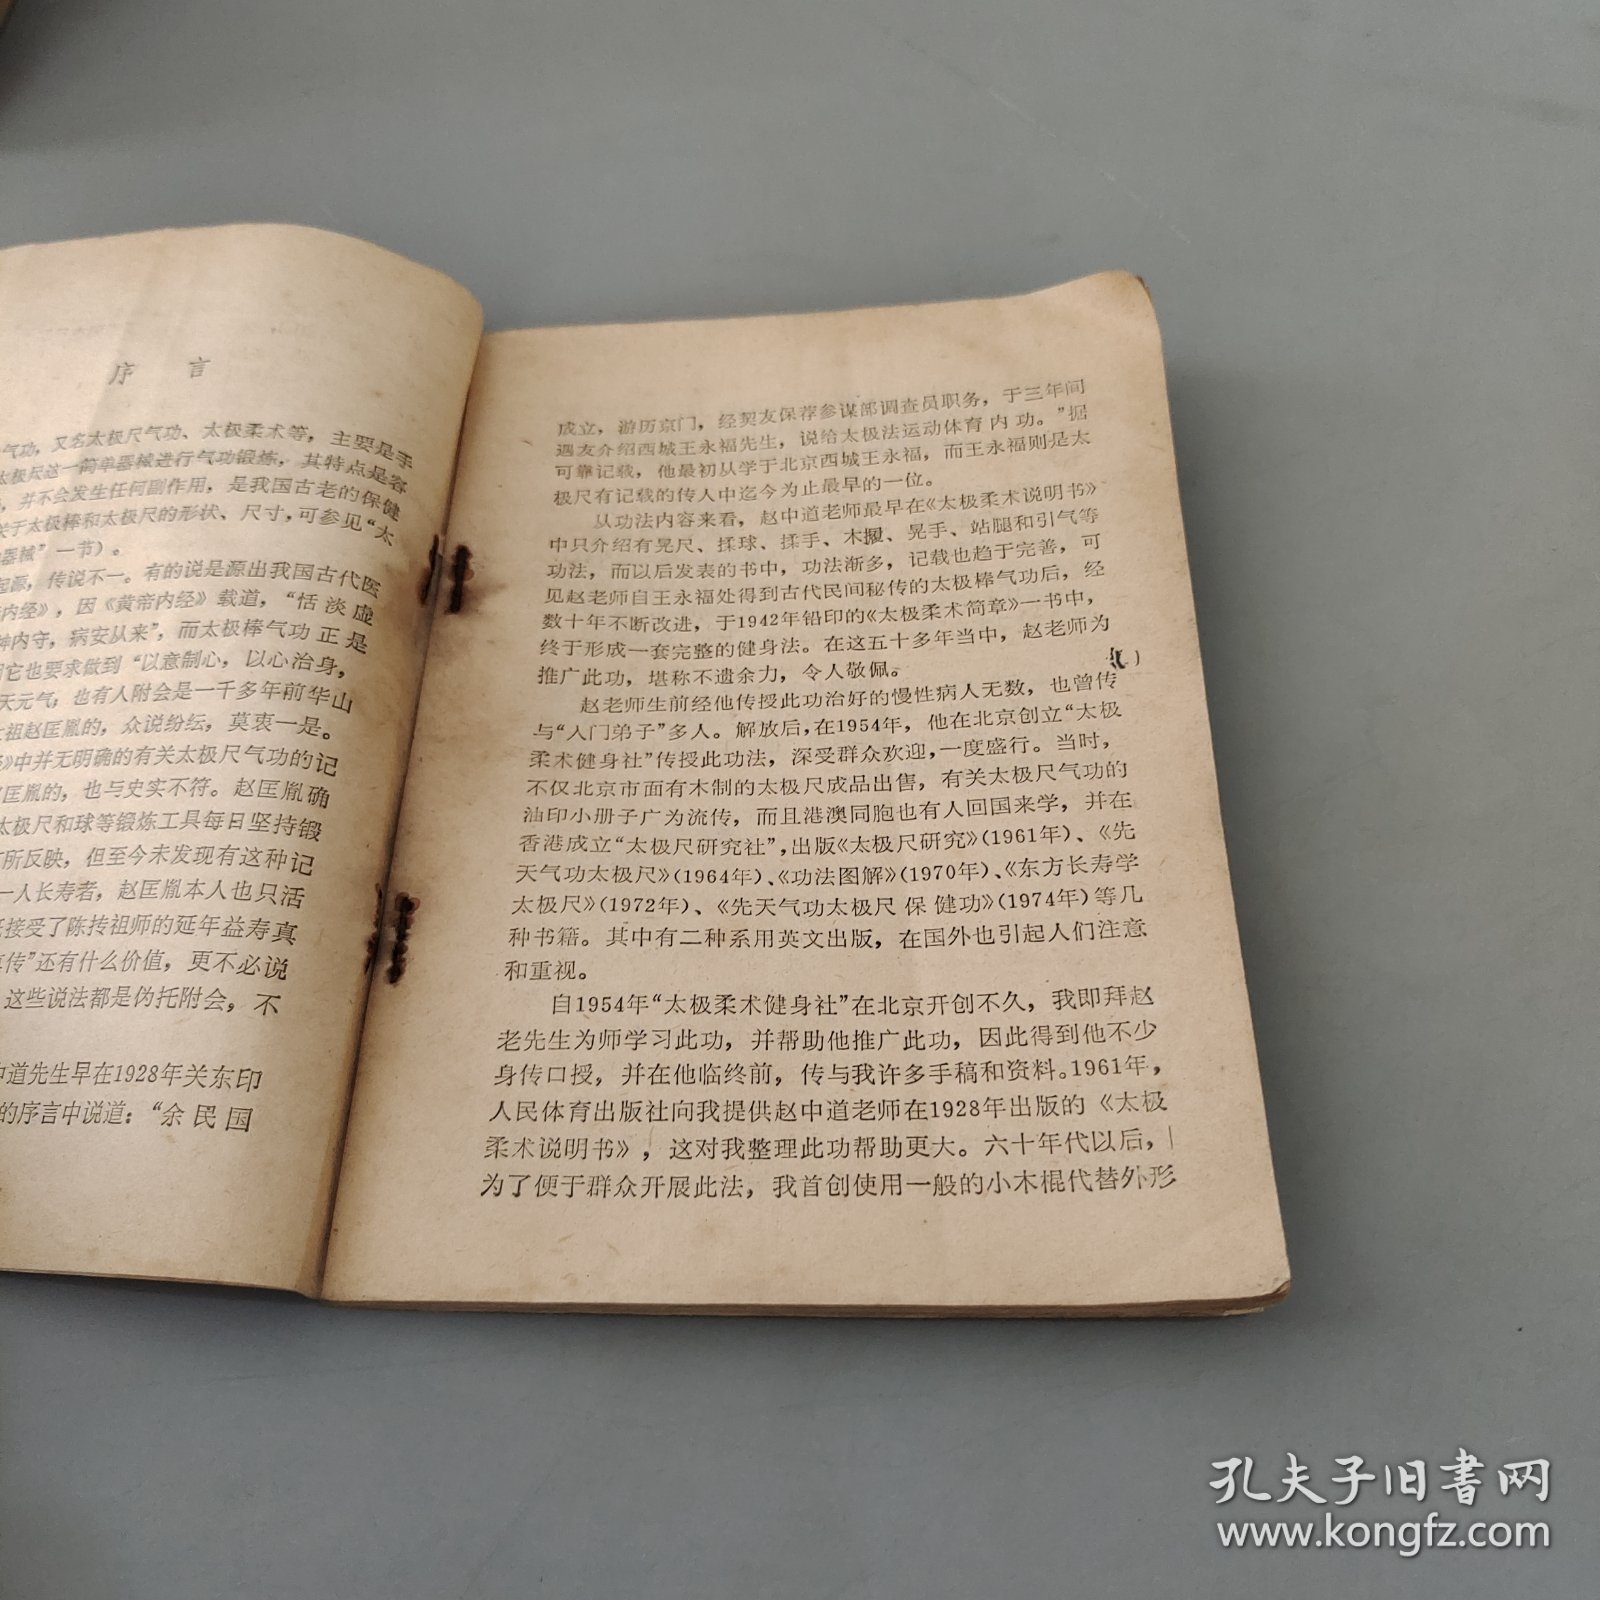 序 言
气功，又名太极尺气功、太极柔术等，主要是手
太极尺这一简单器械进行气功锻炼，其特点是容
，并不会发生任何副作用，是我国古老的保健
关于太极棒和太极尺的形状、尺寸，可参见“太
器械”一节）。
起源，传说不一。有的说是源出我国古代医
内经》，因《黄帝内经》载道，“恬淡虚
神内守，病安从来”，而太极棒气功正是
它也要求做到“以意制心，以心治身，
天元气，也有人附会是一千多年前华山
祖赵匡胤的，众说纷纭，莫衷一是。
》中并无明确的有关太极尺气功的记
匡胤的，也与史实不符。赵匡胤确
太极尺和球等锻炼工具每日坚持锻
所反映，但至今未发现有这种记
一人长寿者，赵匡胤本人也只活
接受了陈抟祖师的延年益寿真
传”还有什么价值，更不必说
这些说法都是伪托附会，不
中道先生早在1928年关东印
的序言中说道：“余民国
成立，游历京门，经契友保荐参谋部调查员职务，于三年间
遇友介绍西城王永福先生，说给太极法运动体育内功。”据
可靠记载，他最初从学于北京西城王永福，而王永福则是太
极尺有记载的传人中迄今为止最早的一位。
从功法内容来看，赵中道老师最早在《太极柔术说明书》
中只介绍有晃尺、揉球、揉手、木履、晃手、站腿和引气等
功法，而以后发表的书中，功法渐多，记载也趋于完善，可
见赵老师自王永福处得到古代民间秘传的太极棒气功后，经
数十年不断改进，于1942年铅印的《太极柔术简章》一书中，
终于形成一套完整的健身法。在这五十多年当中，赵老师为
推广此功，堪称不遗余力，令人敬佩。
赵老师生前经他传授此功治好的慢性病人无数，也曾传
与“入门弟子”多人。解放后，在1954年，他在北京创立“太极
柔术健身社”传授此功法，深受群众欢迎，一度盛行。当时，
不仅北京市面有木制的太极尺成品出售，有关太极尺气功的
油印小册子广为流传，而且港澳同胞也有人回国来学，并在
香港成立“太极尺研究社”，出版《太极尺研究》（1961年）、《先
天气功太极尺》（1964年）、《功法图解》（1970年）、《东方长寿学
太极尺》（1972年）、《先天气功太极尺保健功》（1974年）等几
种书籍。其中有二种系用英文出版，在国外也引起人们注意
和重视。
自1954年“太极柔术健身社”在北京开创不久，我即拜赵
老先生为师学习此功，并帮助他推广此功，因此得到他不少
身传口授，并在他临终前，传与我许多手稿和资料。1961年，
人民体育出版社向我提供赵中道老师在1928年出版的《太极
柔术说明书》，这对我整理此功帮助更大。六十年代以后，
为了便于群众开展此法，我首创使用一般的小木棍代替外形
孔夫子旧书网
www.kongfz.com